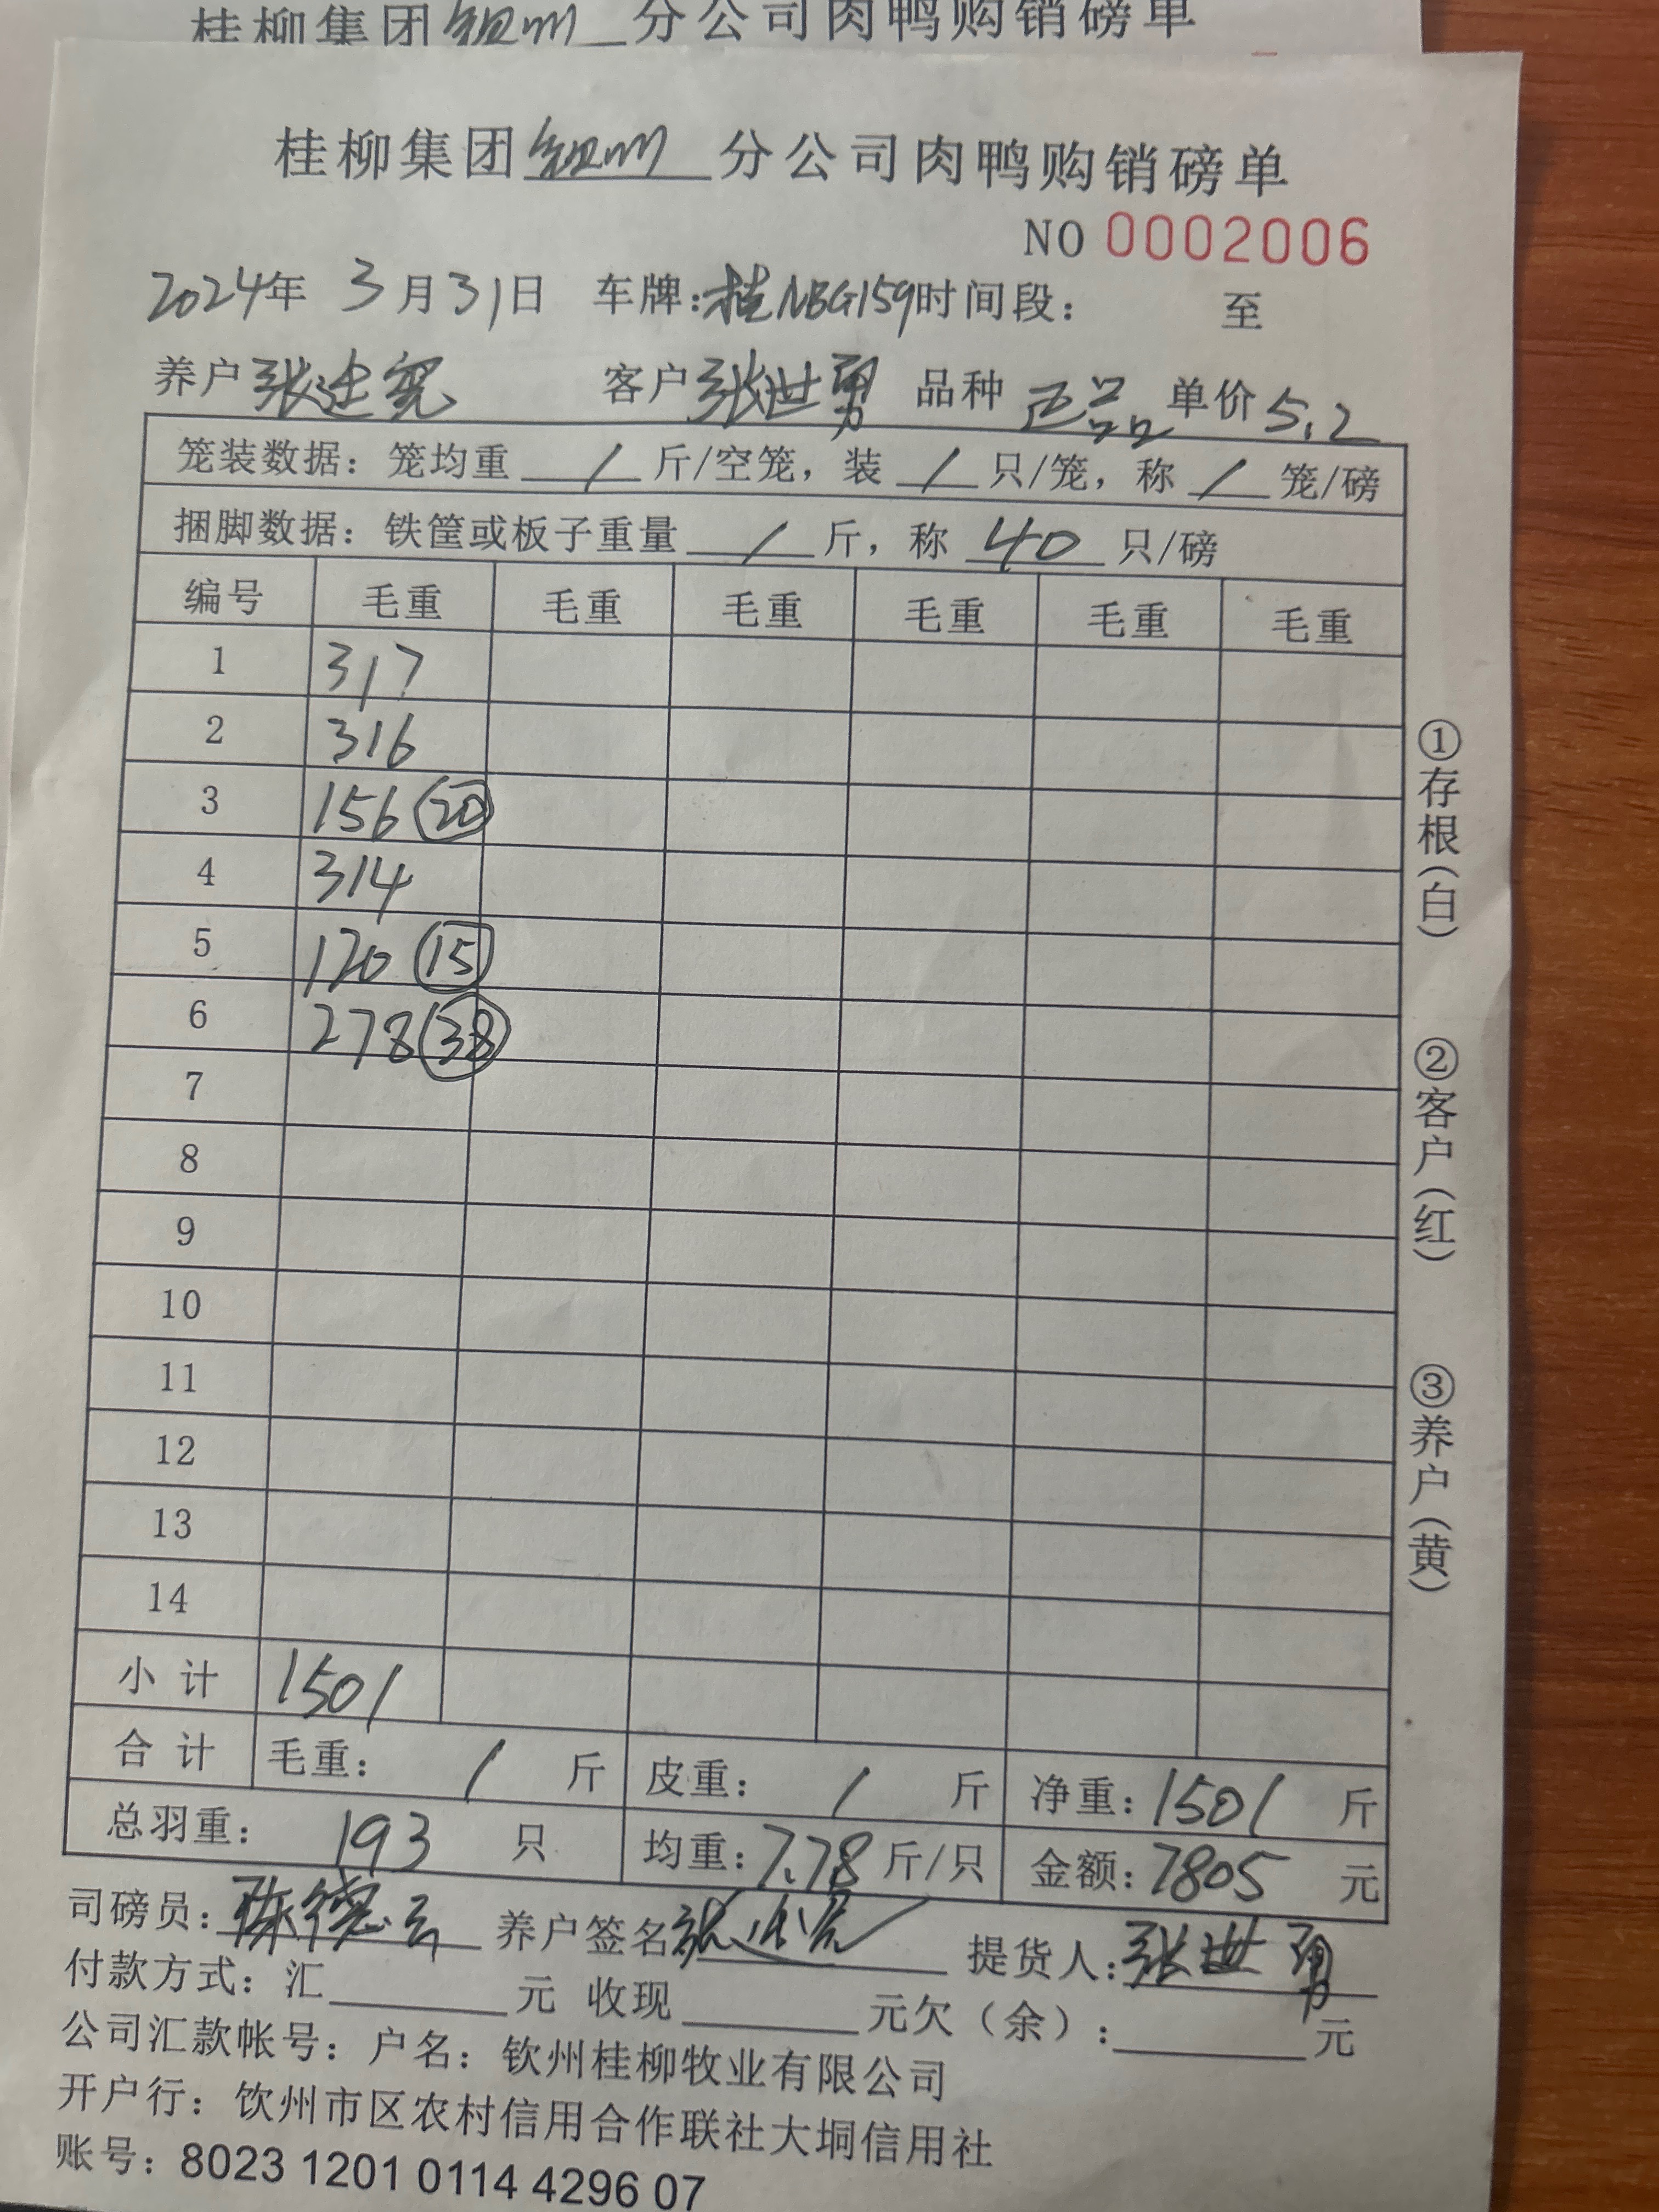 桂柳集团钦州分公司肉鸭购销磅单
桂柳集团钦州分公司肉鸭购销磅单
NO 0002006
2024年 3月31日 车牌:桂NBG159时间段: 至
养户张进宽 客户张世勇 品种 正品 单价5.2
笼装数据: 笼均重 / 斤/空笼, 装 / 只/笼, 称 / 笼/磅
捆脚数据: 铁筐或板子重量 / 斤, 称 40 只/磅
编号 毛重 毛重 毛重 毛重 毛重 毛重
1 317
2 316
3 156 20
4 314
5 120 15
6 278 38
7
8
9
10
11
12
13
14
小计 1501
合计 毛重: / 斤 皮重: / 斤 净重: 1501 斤
总羽重: 193 只 均重: 7.78 斤/只 金额: 7805 元
司磅员: 陈德云 养户签名 提货人: 张世勇
付款方式: 汇 元 收现 元欠(余): 元
公司汇款帐号: 户名: 钦州桂柳牧业有限公司
开户行: 钦州市区农村信用合作联社大垌信用社
账号: 8023 1201 0114 4296 07
①存根(白)
②客户(红)
③养户(黄)